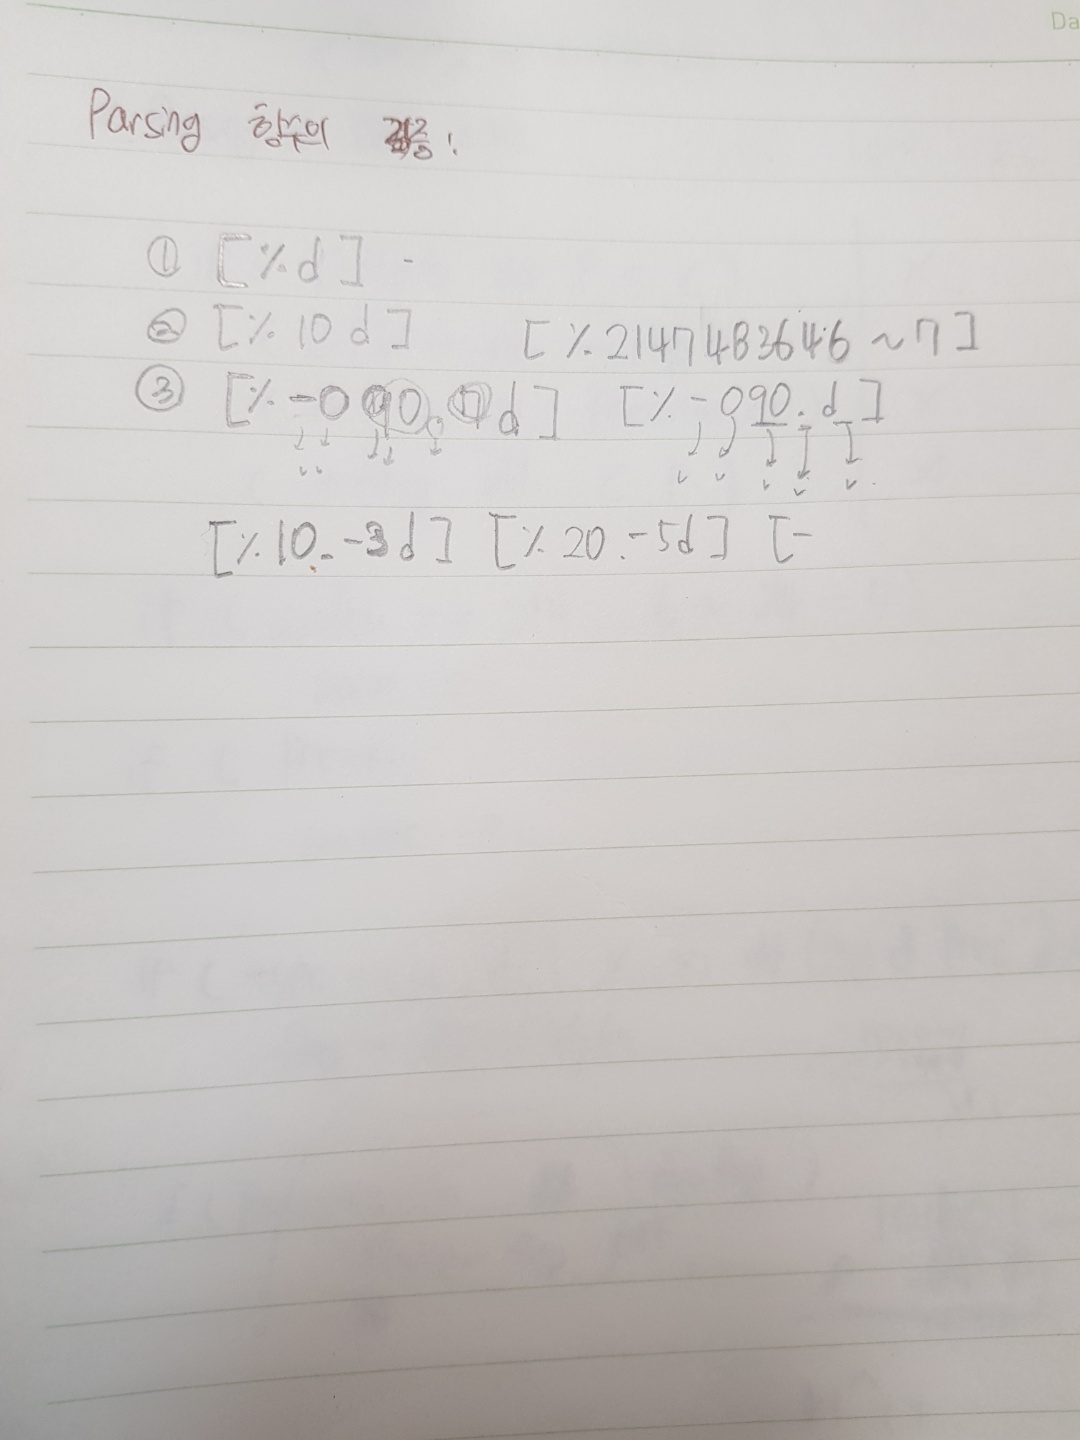 Da
Parsing 함수의 검증!
① [%d] -
② [% 10 d] [% 2147483646 ~ 7]
③ [% -0 d] [% - 090. d]
[% 10. -3d] [% 20. -5d] [-